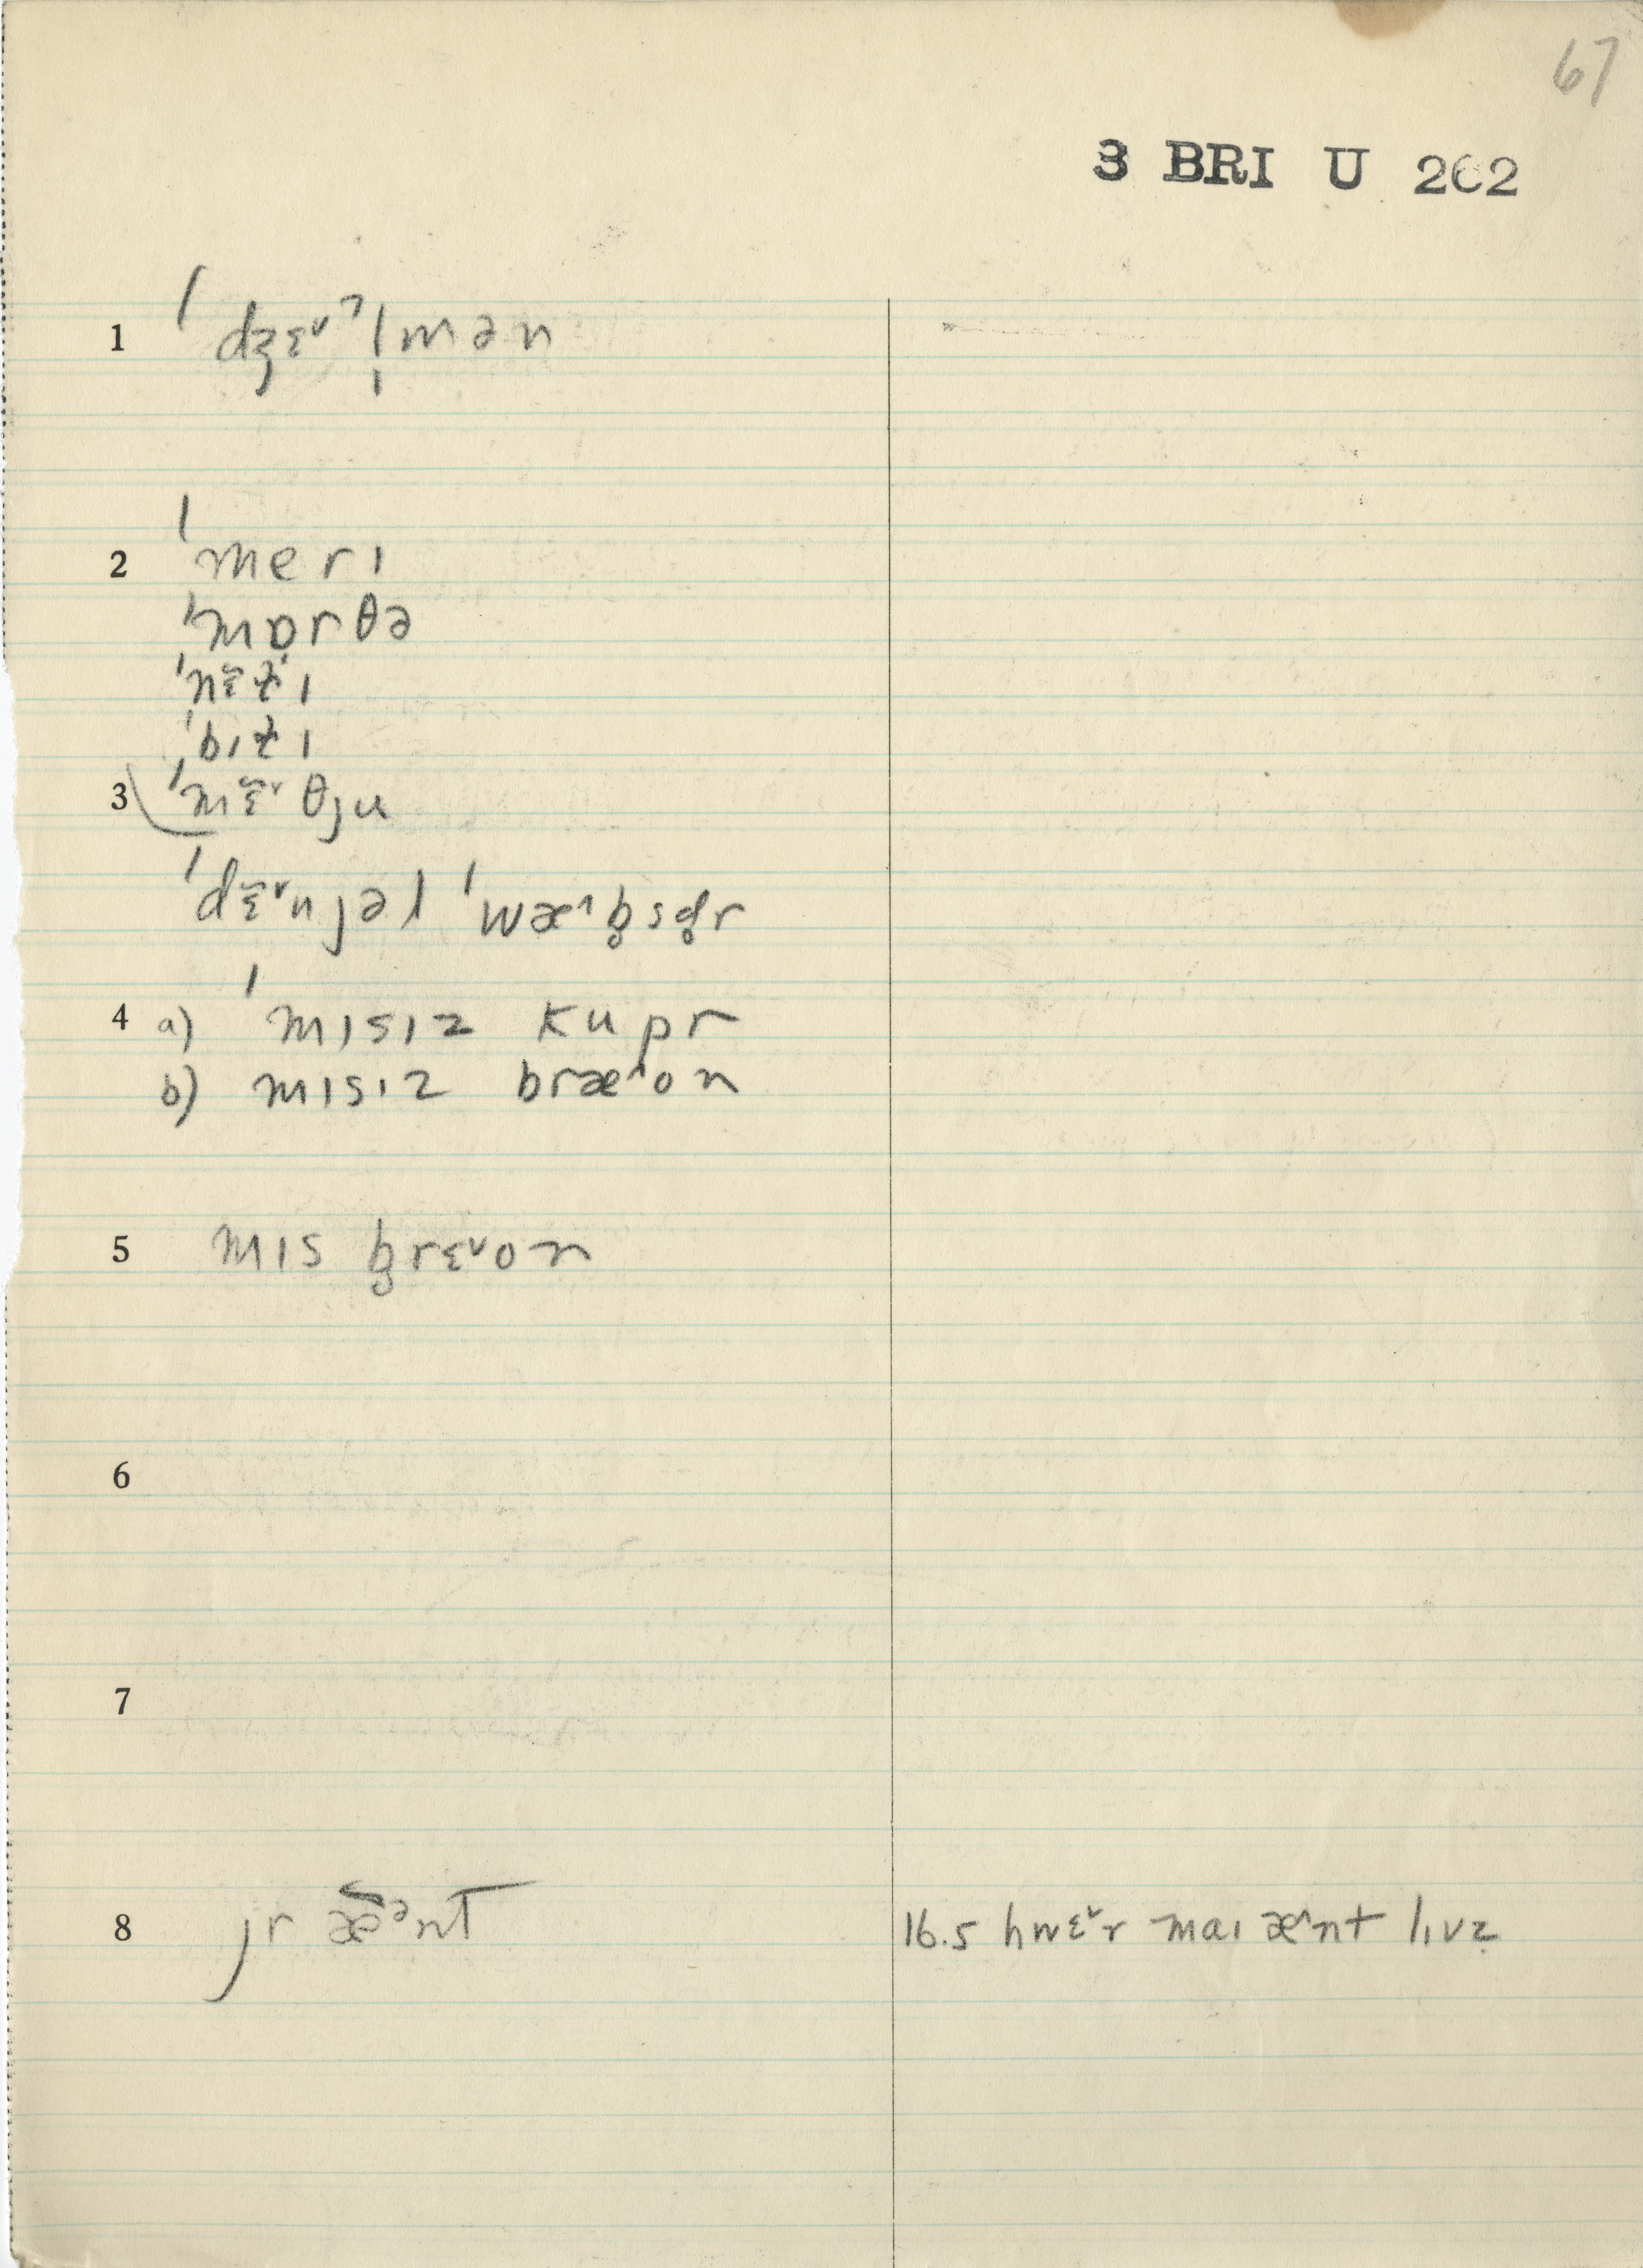 67
3 BRI U 262
1 ˈdʒɛ˅ˀl̩mən
2 ˈmerɪ
ˈmɒrθə
ˈnɛ̃t̬ɪ
ˈbɪt̬ɪ
3 ˈmɛ̃˅θju
ˈdɛ̃˅njəl ˈwæ^b̥sd̥r
4 a) ˈmɪsɪz kupr
b) mɪsɪz bræ^on
5 mɪs b̥rɛ˅on
6
7
8 jr æ̃ᵊnt
16.5 hwɛ˅r maɪ æ^nt lɪvz̥